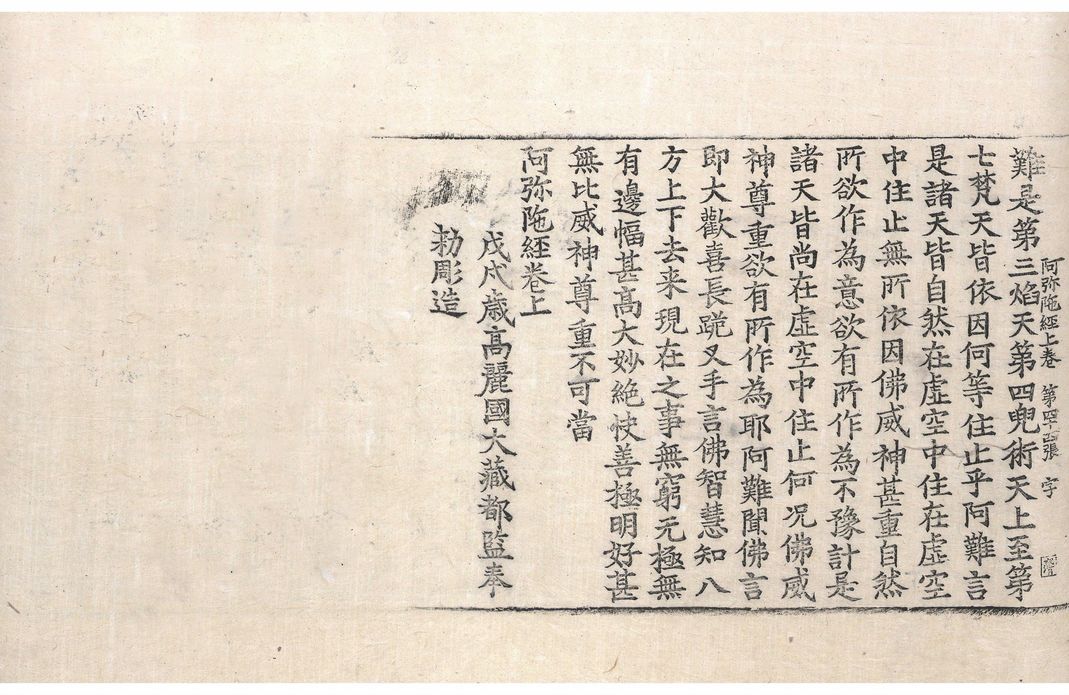 阿弥陁經上卷 第罕四張 字
難是第三焰天第四兜術天上至第
七梵天皆依因何等住止乎阿難言
是諸天皆自然在虛空中住在虛空
中住止無所依因佛威神甚重自然
所欲作為意欲有所作為不豫計是
諸天皆尚在虛空中住止何況佛威
神尊重欲有所作為耶阿難聞佛言
即大歡喜長跪叉手言佛智慧知八
方上下去来現在之事無窮无極無
有邊幅甚高大妙絕快善極明好甚
無比威神尊重不可當
阿弥陁經卷上
戊戌歲高麗國大藏都監奉
勑彫造